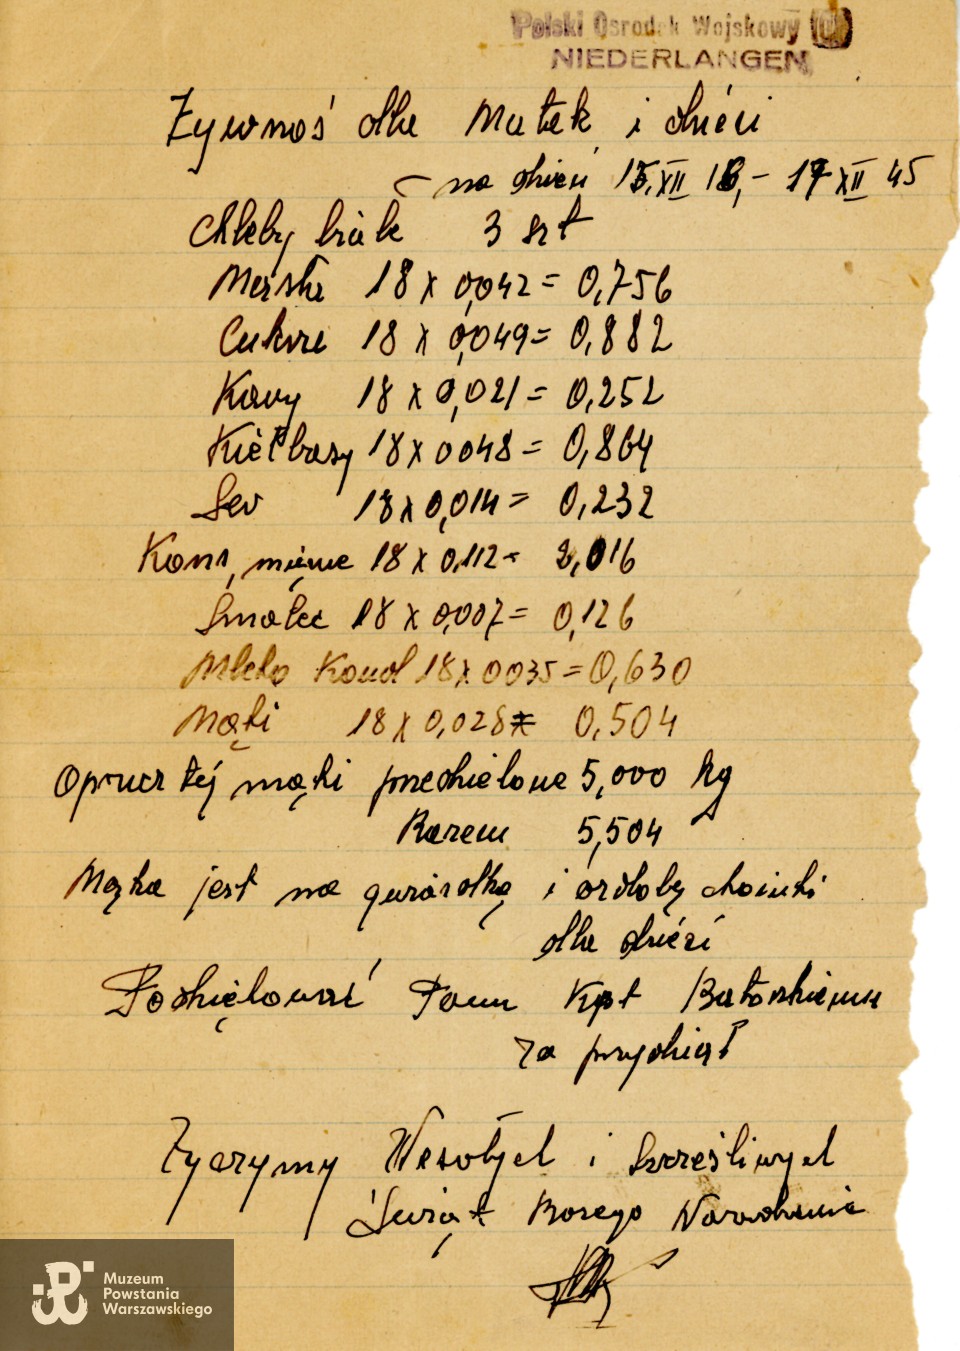 Polski Ośrodek Wojskowy
NIEDERLANGEN
Żywnoś dla Matek i dzieci
na dzień 15.XII 16, - 17 XII 45
Chleby białe 3 szt
Masła 18 x 0,042 = 0,756
Cukru 18 x 0,049 = 0,882
Kawy 18 x 0,021 = 0,252
Kiełbasy 18 x 0048 = 0,864
Ser 18 x 0,014 = 0,232
Kons, mięsne 18 x 0,112 - 2,016
Smalec 18 x 0,007 = 0,126
Mleko Kond 18 x 0035 = 0,630
Mąki 18 x 0,028 = 0,504
Oprucz tej mąki przedzielone 5,000 kg
Razem 5,504
Mąka jest na gwiazdkę i ozdoby choinki
dla dzieci
Podziękować Panu Kpt Batorskiemu
za przydział
Życzymy Wesołych i Szczęśliwych
Świąt Bożego Narodzenia
Muzeum
Powstania
Warszawskiego